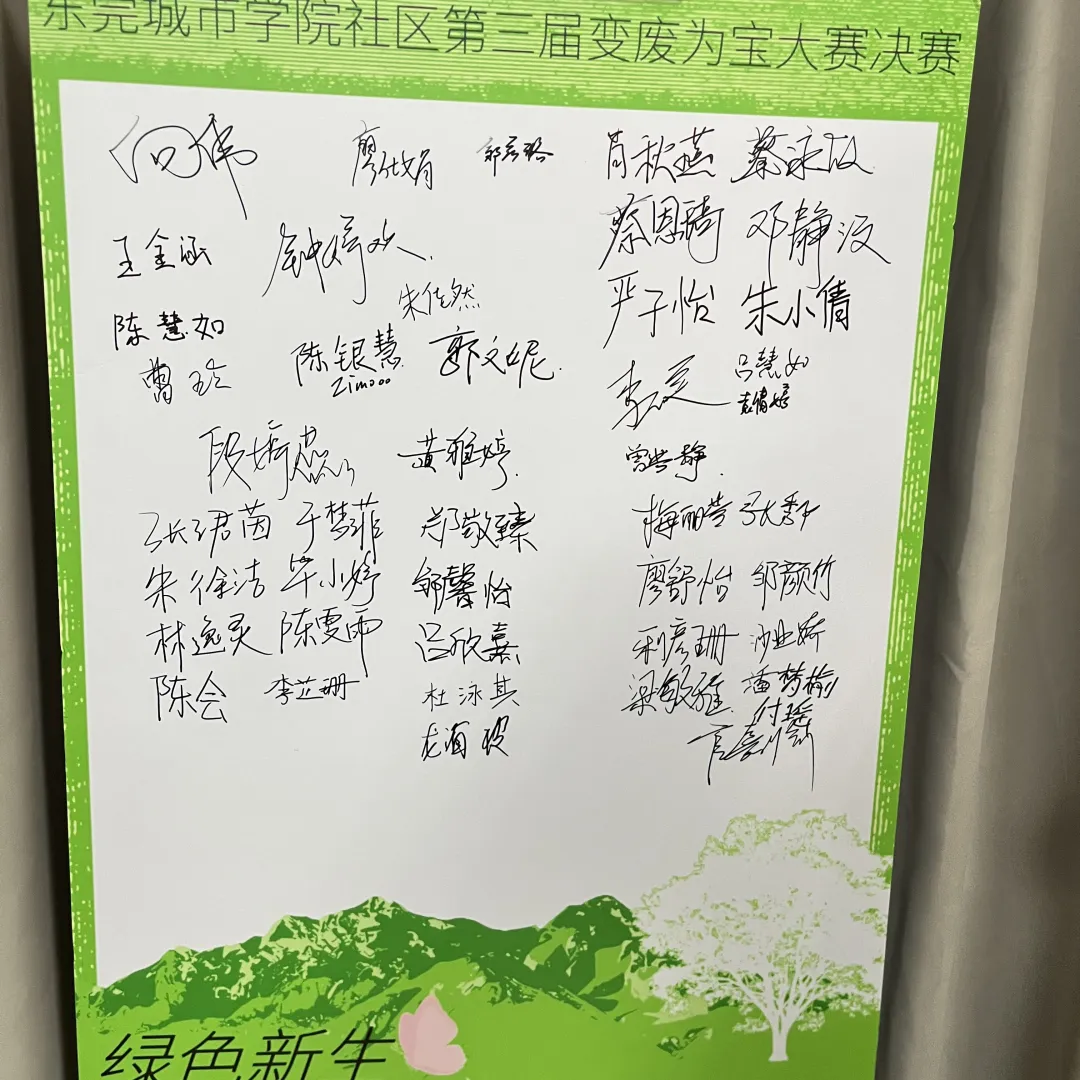 东莞城市学院社区第三届变废为宝大赛决赛
向伟 廖仕娟 肖秋燕 蔡泳
蔡恩琦 邓静
王金涵 钟婷欢
朱佳然 严子怡 朱小倩
陈慧如
陈银慧 郭文妮
zimooo
曹玲 吕慧如
袁倩婷
段婷 黄雅婷
张珺茵 于梦菲 郑敬臻 梅丽芳 张
朱徐洁 毕小婷 邹馨怡 廖舒怡 邹颜竹
林逸灵 陈雯雨 吕欣熹 利彦珊
陈会 李芷珊 杜泳其 梁敏雅 潘梦榆
龙海 付瑶
绿色新生